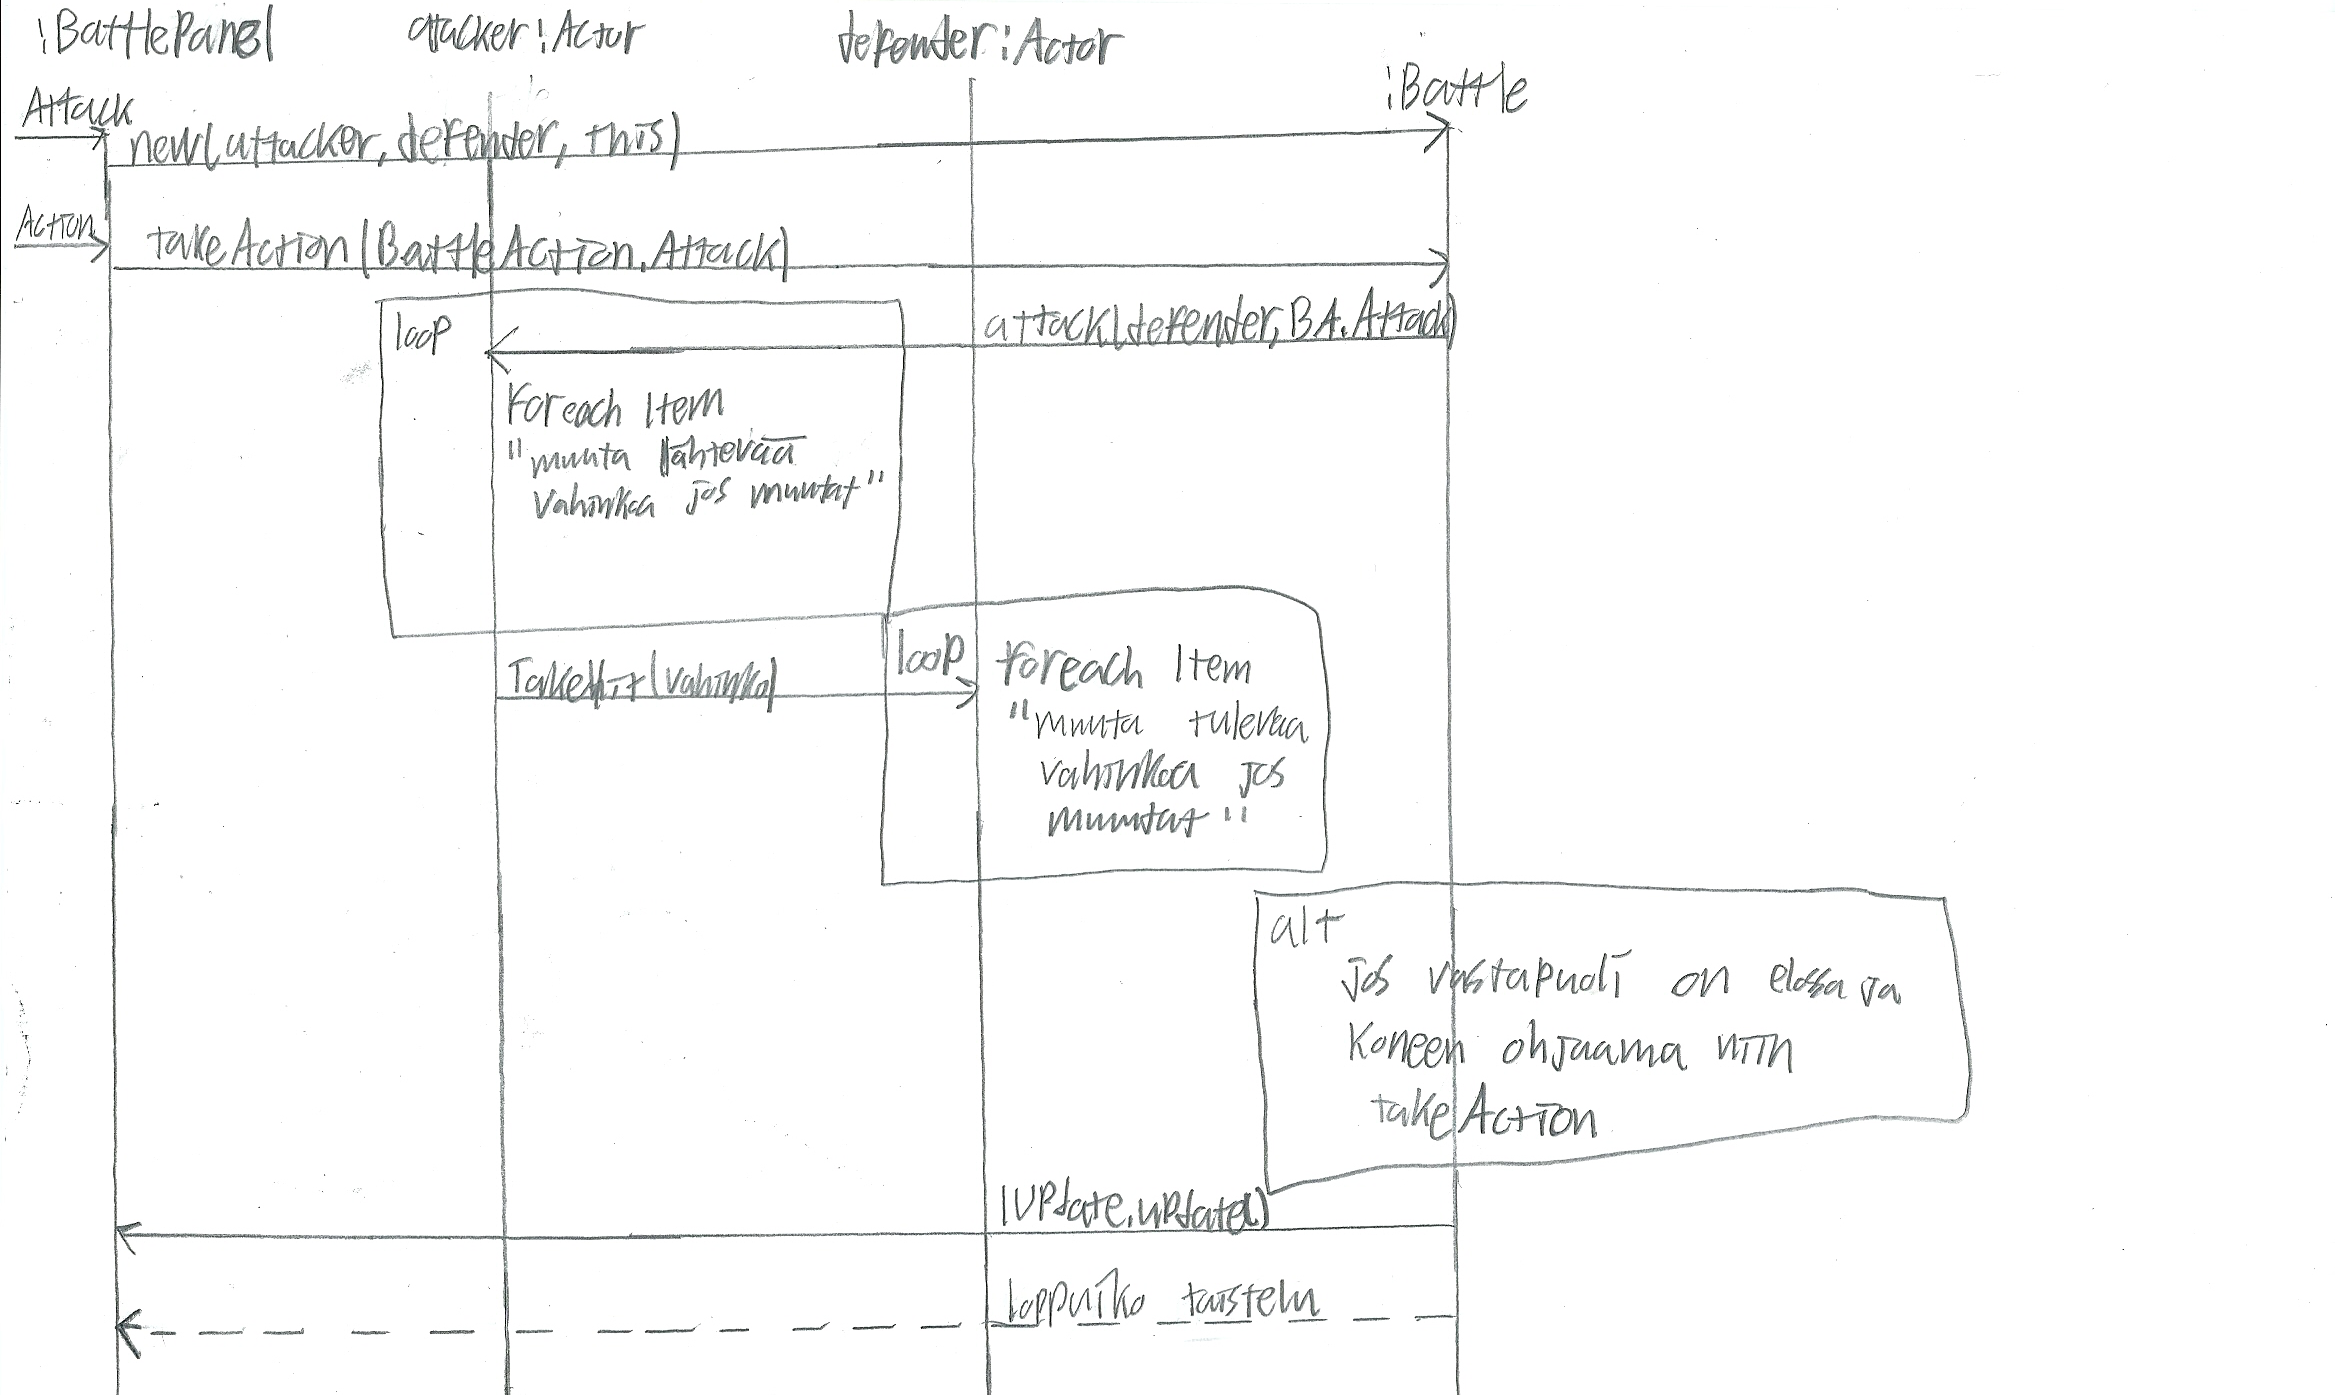 :BattlePanel
attacker:Actor
defender:Actor
:Battle
Attack
new(attacker, defender, this)
Action
takeAction(BattleAction.Attack)
loop
attack(defender, BA.Attack)
Foreach Item
"muuta lähtevää
vahinkoa jos muutat"
TakeHit(vahinko)
loop
foreach Item
"muuta tulevaa
vahinkoa jos
muutat"
alt
jos vastapuoli on elossa ja
koneen ohjaama niin
takeAction
IUpdate.update()
loppuiko taistelu